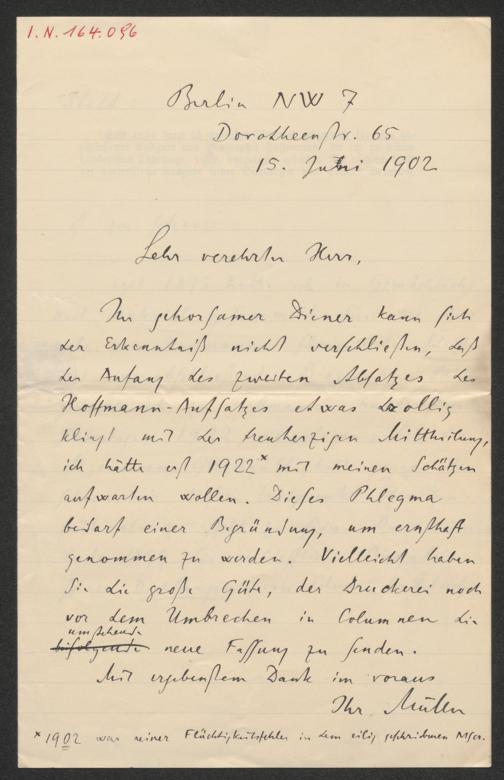 I. N. 164.096
Berlin NW 7
Dorotheenstr. 65
15. Juni 1902
Sehr verehrter Herr,
Ihr gehorsamer Diener kann sich
der Erkenntniß nicht verschließen, daß
der Anfang des zweiten Absatzes des
Hoffmann-Aufsatzes etwas drollig
klingt mit der treuherzigen Mittheilung,
ich hätte erst 1922* mit meinen Schätzen
aufwarten wollen. Dieses Phlegma
bedarf einer Begründung, um ernsthaft
genommen zu werden. Vielleicht haben
Sie die große Güte, der Druckerei noch
vor dem Umbrechen in Columnen die
umstehende
beifolgende neue Fassung zu senden.
Mit ergebenstem Dank im voraus
Ihr Müller
* 1902 war reiner Flüchtigkeitsfehler in dem eilig geschriebenen Mscr.